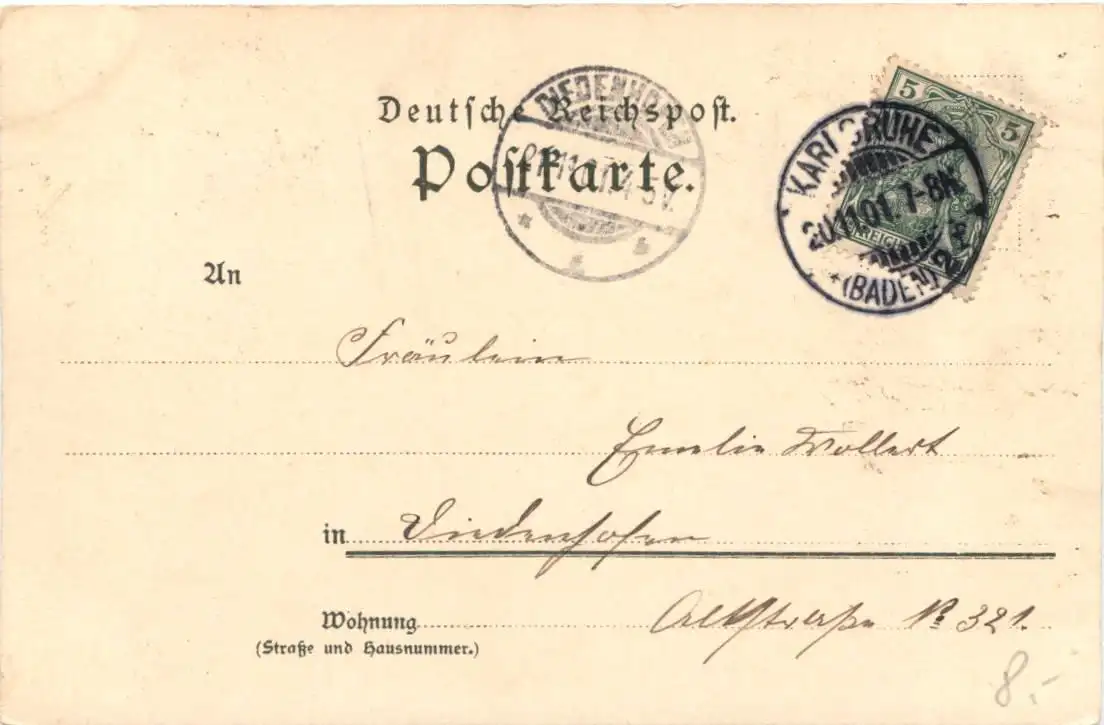 Deutsche Reichspost.
Postkarte.
DIEDENHOFEN
5
5
REICH
KARLSRUHE
20.11.01. 7-8N.
(BADEN) 2
An
Fräulein
Emelie Wollert
in Diedenhofen
Wohnung
(Straße und Hausnummer.)
Altstraße No 321.
8.-